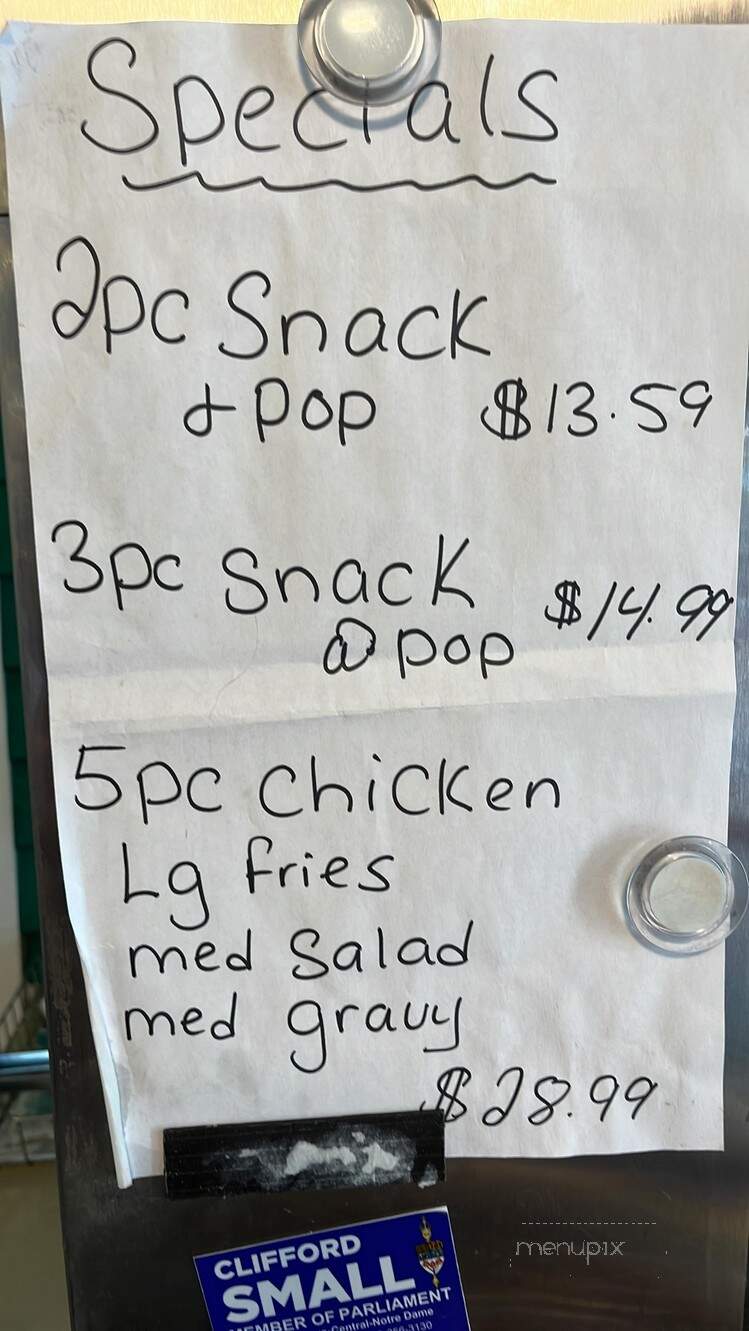 Specials
2pc Snack
& Pop $13.59
3pc Snack
@ pop $14.99
5pc Chicken
Lg fries
med Salad
med gravy
$28.99
CLIFFORD
SMALL
MEMBER OF PARLIAMENT
Central-Notre Dame
3130
menupix